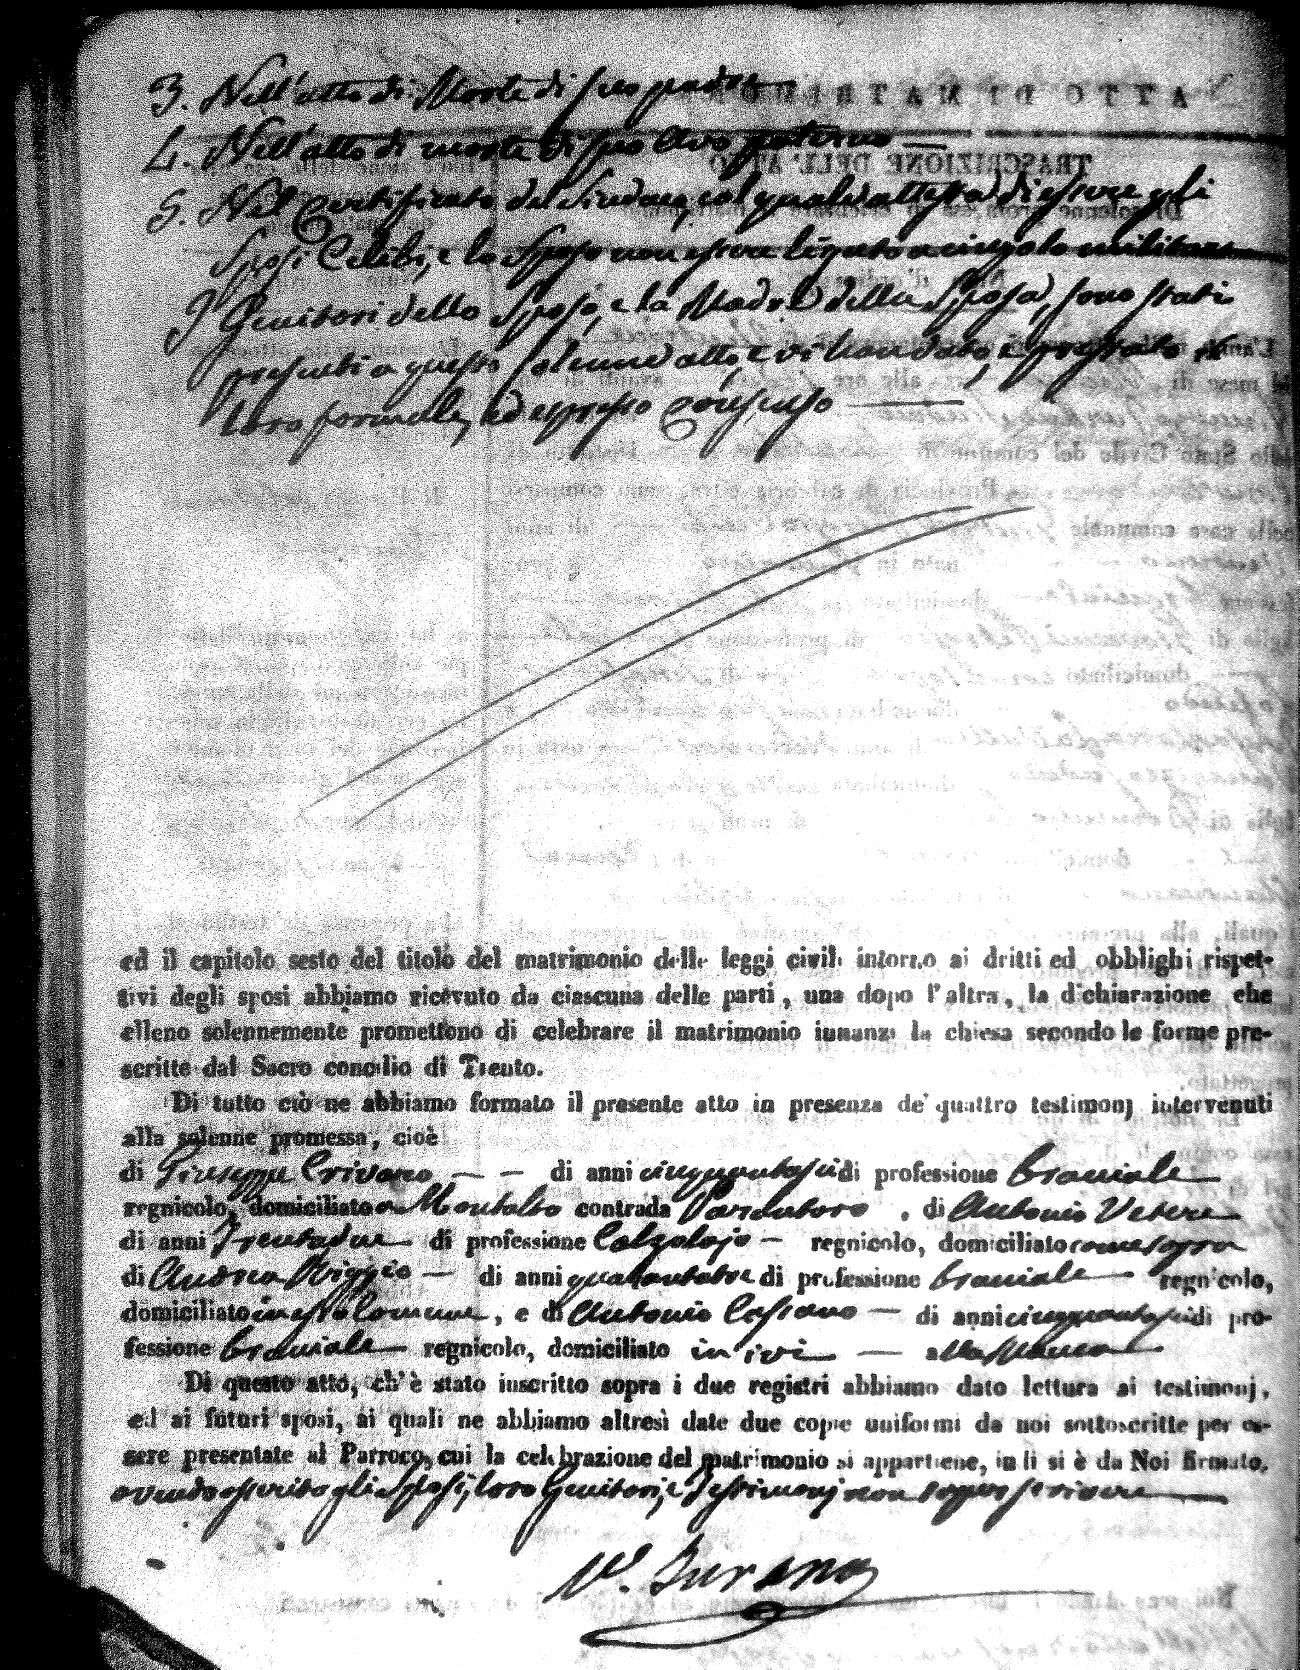 3. Nell'atto di Morte di suo padre
4. Nell'atto di morte di suo Avo paterno
5. Nel Certificato del Sindaco, col quale attesta di essere gli
Sposi Celibi, e lo Sposo non essere legato a cingolo militare
I Genitori dello Sposo, e la Madre della Sposa, sono stati
presenti a questo solenne atto, e vi han dato, e prestato il
loro formale, ed espresso Consenso
ed il capitolo sesto del titolo del matrimonio delle leggi civili intorno ai dritti ed obblighi rispet-
tivi degli sposi abbiamo ricevuto da ciascuna delle parti, una dopo l'altra, la dichiarazione che
elleno solennemente promettono di celebrare il matrimonio innanzi la chiesa secondo le forme pre-
scritte dal Sacro concilio di Trento.
Di tutto ciò ne abbiamo formato il presente atto in presenza de' quattro testimonj intervenuti
alla solenne promessa, cioè
di Giuseppe Crivaro — — di anni cinquantasei di professione braciale
regnicolo, domiciliato a Montalto contrada , di Antonio Vetere
di anni Trentadue di professione Calzolajo — regnicolo, domiciliato come sopra
di Andrea Riggio — di anni quarantatre di professione braciale — regnicolo,
domiciliato in esso Comune, e di Antonio Cassano — di anni cinquantasei di pro-
fessione braciale regnicolo, domiciliato in ivi —
Di questo atto, ch'è stato inscritto sopra i due registri abbiamo dato lettura ai testimonj,
ed ai futuri sposi, ai quali ne abbiamo altresì date due copie uniformi da noi sottoscritte per es-
sere presentate al Parroco, cui la celebrazione del matrimonio si appartiene, indi si è da Noi firmato,
avendo asserito gli Sposi, loro Genitori, e Testimonj non saper scrivere
V. Turano